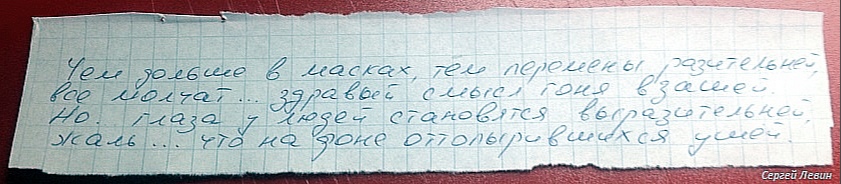 Чем дольше в масках, тем перемены разительней,
все молчат... здравый смысл гоня взашей.
Но. глаза у людей становятся выразительней,
жаль... что на фоне оттопырившихся ушей.
Сергей Левин